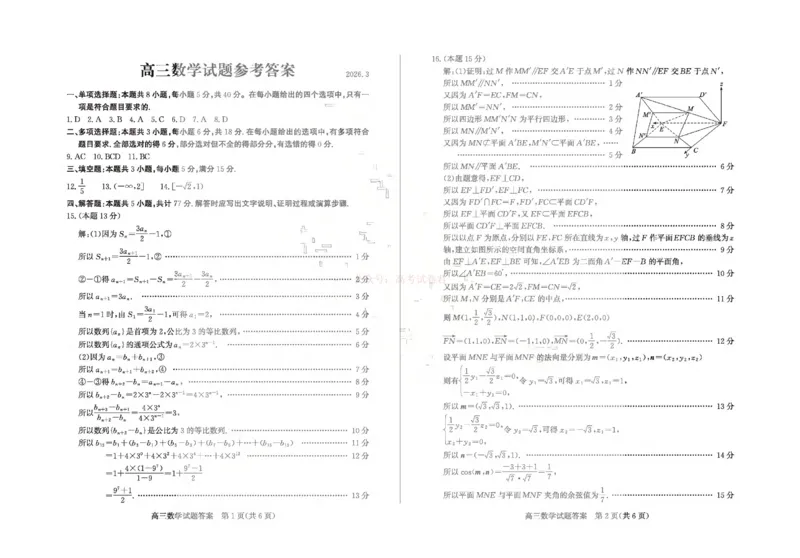 高三数学试题参考答案
2026.3
一、单项选择题:本题共 8 小题,每小题 5 分,共 40 分。在每小题给出的四个选项中,只有一
项是符合题目要求的.
1. D 2. A 3. B 4. A 5. C 6. D 7. A 8. D
二、多项选择题:本题共 3 小题,每小题 6 分,共 18 分。在每小题给出的选项中,有多项符合
题目要求.全部选对的得 6 分,部分选对但不全的得部分分,有选错的得 0 分.
9. AC 10. BCD 11. BC
三、填空题:本题共 3 小题,每小题 5 分,满分 15 分.
12. 1/5 13. (-∞,2] 14. [-√2,1)
四、解答题:本题共 5 小题,共计 77 分.解答时应写出文字说明、证明过程或演算步骤.
15.(本题 13 分)
解:(1)因为 Sₙ=3aₙ/2-1,①
所以 Sₙ₊₁=3aₙ₊₁/2-1,② 1 分
②-①得 aₙ₊₁=Sₙ₊₁-Sₙ=3aₙ₊₁/2-3aₙ/2. 2 分
所以 aₙ₊₁=3aₙ. 3 分
当 n=1 时,由 S₁=3a₁/2-1,可得 a₁=2, 4 分
所以数列{aₙ}是首项为 2,公比为 3 的等比数列, 5 分
所以数列{aₙ}的通项公式为 aₙ=2×3ⁿ⁻¹. 6 分
(2)因为 aₙ=bₙ+bₙ₊₁,③
所以 aₙ₊₁=bₙ₊₁+bₙ₊₂,④ 7 分
④-③得 bₙ₊₂-bₙ=aₙ₊₁-aₙ, 8 分
所以 bₙ₊₂-bₙ=2×3ⁿ-2×3ⁿ⁻¹=4×3ⁿ⁻¹, 9 分
所以 =4×3ⁿ/4×3ⁿ⁻¹=3,
所以数列{bₙ₊₂-bₙ}是公比为 3 的等比数列. 10 分
所以 b₁₅=b₁+(b₃-b₁)+(b₅-b₃)+(b₇-b₅)+⋯+(b₁₅-b₁₃) 11 分
=1+4×3⁰+4×3²+4×3⁴+⋯+4×3¹² 12 分
=1+4×(1-9⁷)/1-9=1+9⁷-1/2
=9⁷+1/2. 13 分
高三数学试题答案 第 1 页(共 6 页)
16.(本题 15 分)
解:(1)证明:过 M 作 MM′∥EF 交 A′E 于点 M′,过 N 作 NN′∥EF 交 BE 于点 N′,
所以 MM′∥NN′, 1 分
又因为 A′F=EC,FM=CN,
所以 MM′=NN′. 2 分
所以四边形 MM′N′N 为平行四边形, 3 分
所以 MN∥M′N′, 4 分
又因为 MN⊄平面 A′BE,M′N′⊂平面 A′BE,
5 分
所以 MN∥平面 A′BE. 6 分
(2)由题意得,EF⊥CD,
所以 EF⊥FD′,EF⊥FC, 7 分
又因为 FD′∩FC=F,FD′,FC⊂平面 CD′F,
所以 EF⊥平面 CD′F,又 EF⊂平面 EFCB,
所以平面 CD′F⊥平面 EFCB. 8 分
所以以点 F 为原点,分别以 FE,FC 所在直线为 x,y 轴,过 F 作平面 EFCB 的垂线为 z
轴,建立如图所示的空间直角坐标系, 9 分
由 EF⊥A′E,EF⊥BE 可知,∠A′EB 为二面角 A′-EF-B 的平面角,
所以∠A′EB=60°, 10 分
又因为 A′F=CE=2√2,FM=CN=√2,
所以 M,N 分别是 A′F,CE 的中点, 11 分
则 M(1,1/2,√3/2),N(1,1,0),F(0,0,0),E(2,0,0)
FN=(1,1,0),EN=(-1,1,0),MN=(0,1/2,-√3/2). 12 分
设平面 MNE 与平面 MNF 的法向量分别为 m=(x₁,y₁,z₁),n=(x₂,y₂,z₂)
则有{1/2y₁-√3/2z₁=0, 令 y₁=√3,可得 x₁=√3,z₁=1,
-x₁+y₁=0,
所以 m=(√3,√3,1). 13 分
{1/2y₂-√3/2z₂=0, 令 y₂=√3,可得 x₂=-√3,z₂=1,
x₂+y₂=0,
所以 n=(-√3,√3,1). 14 分
所以 cos⟨m,n⟩=-3+3+1/√7·√7=1/7,
所以平面 MNE 与平面 MNF 夹角的余弦值为1/7. 15 分
A′
D′
M′
M
E
F
N′
N
B
C
x
y
z
高三数学试题答案 第 2 页(共 6 页)